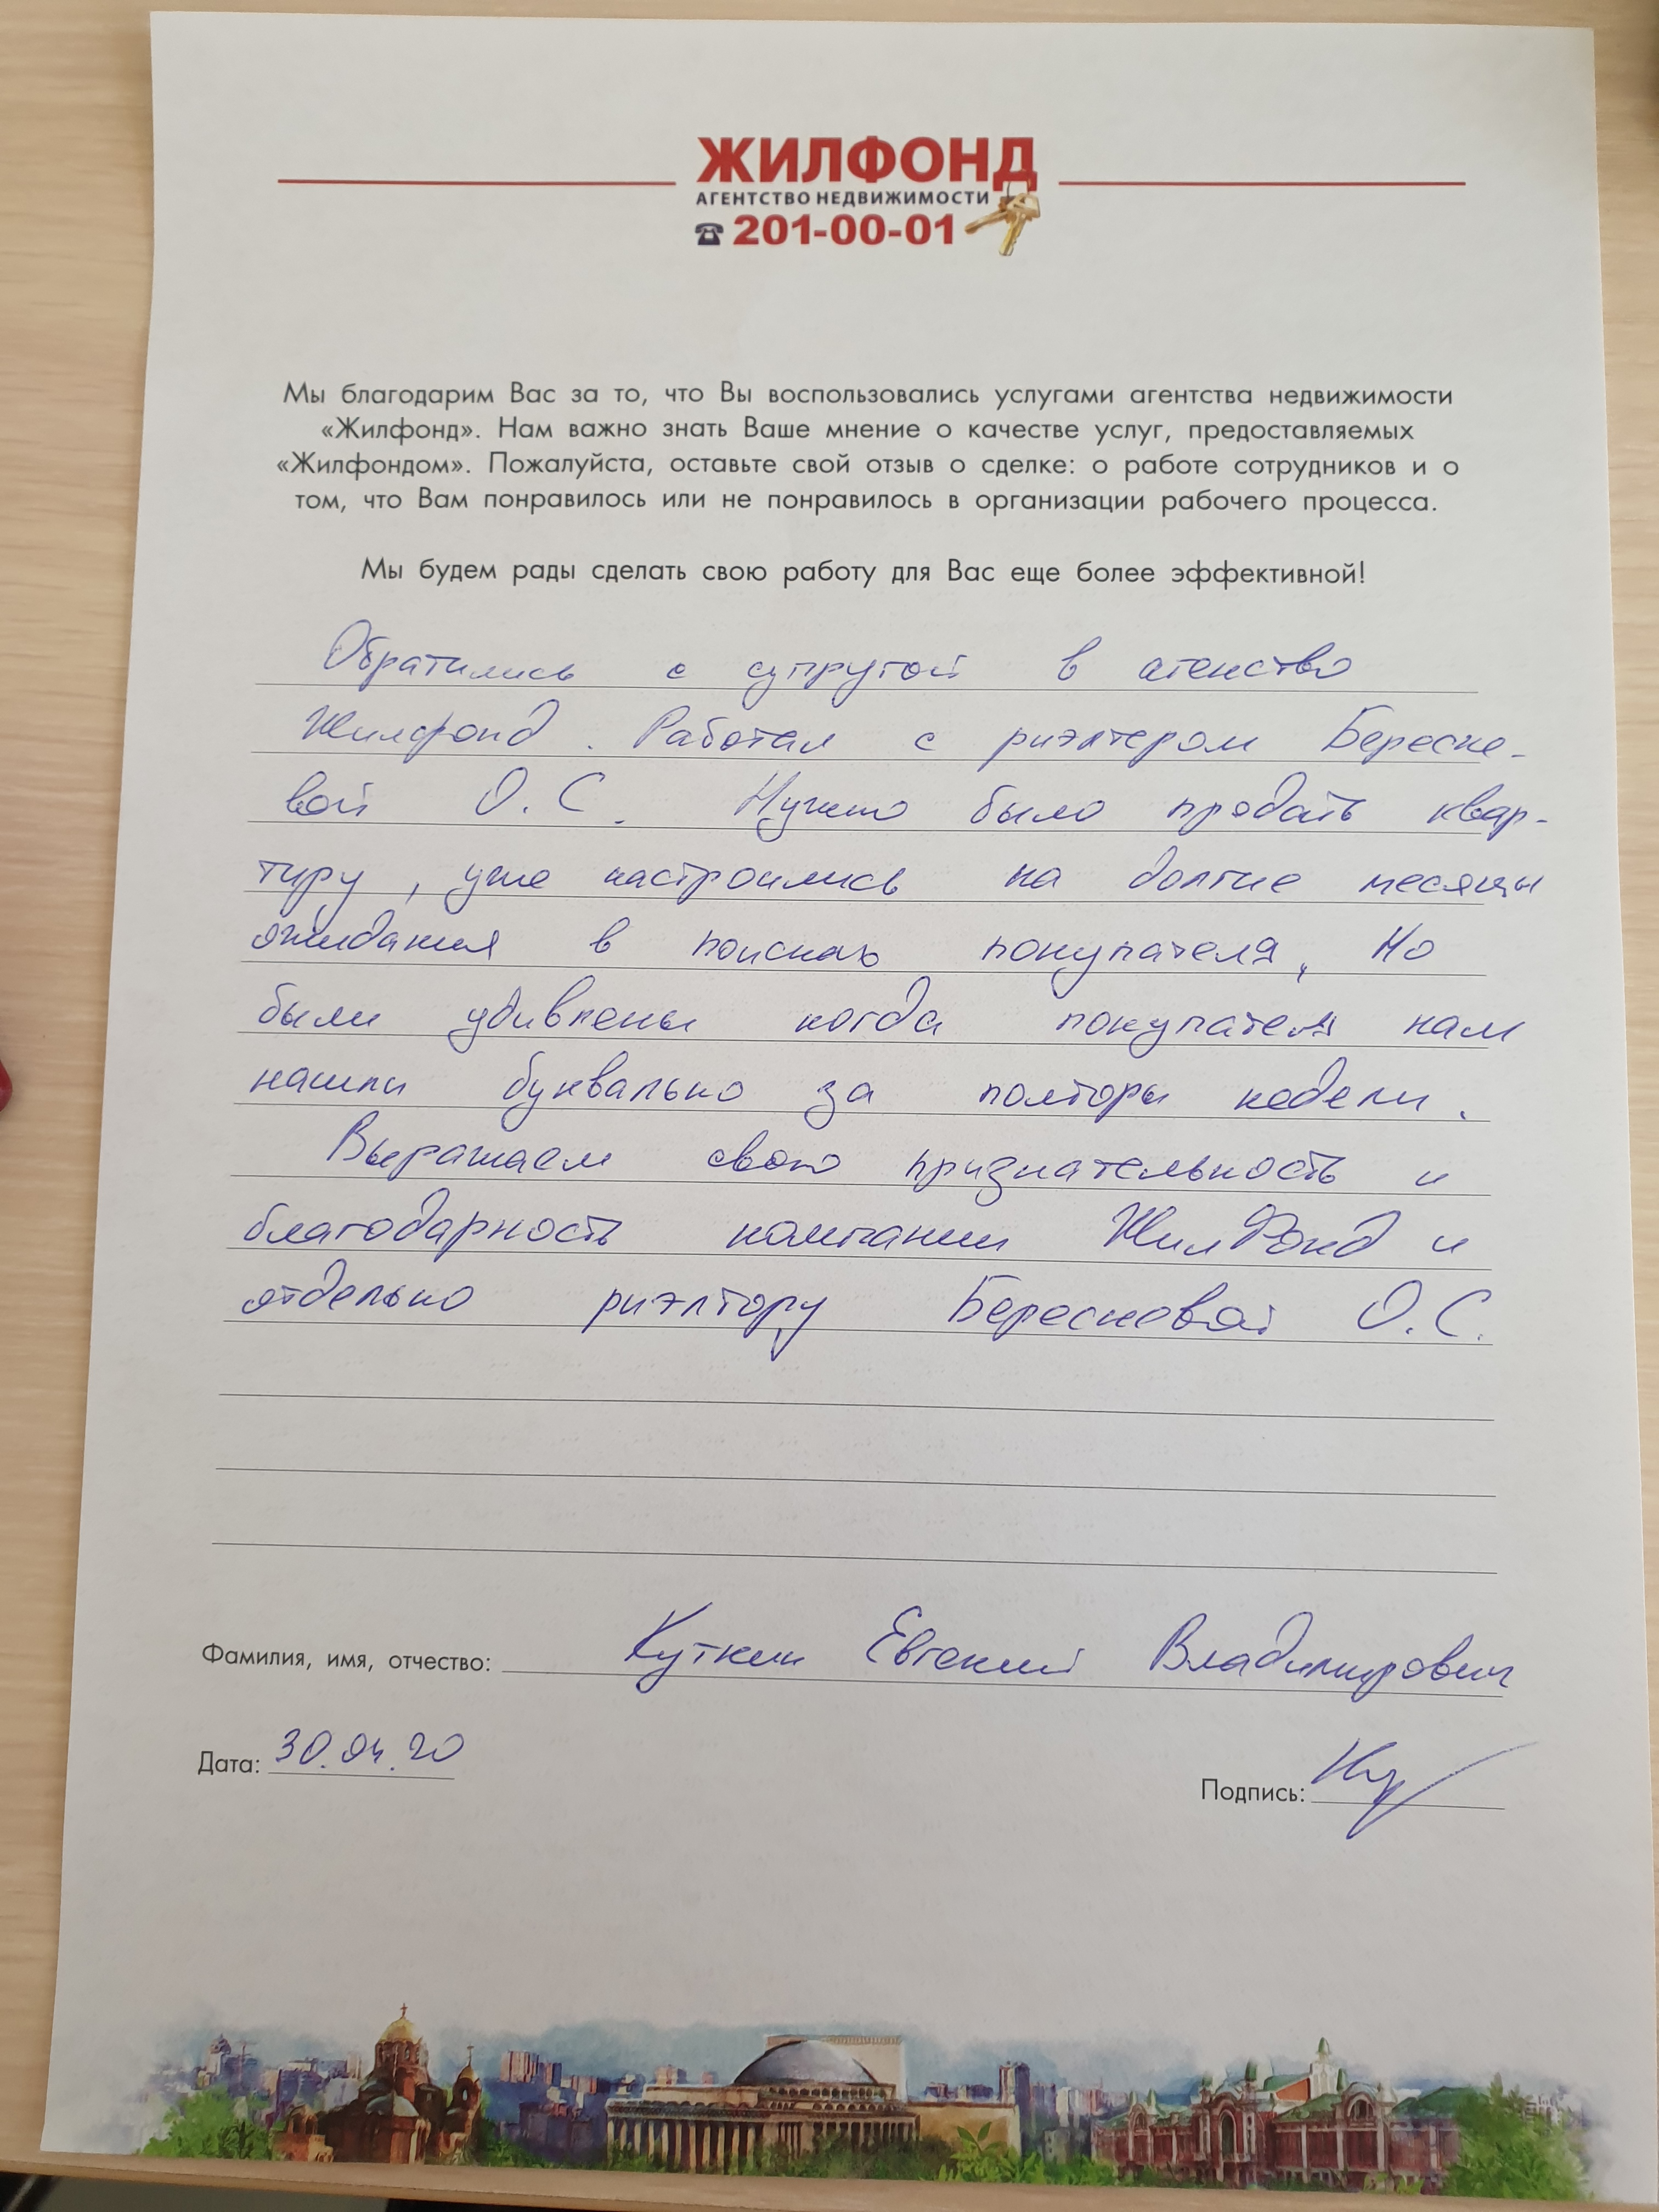 ЖИЛФОНД
АГЕНТСТВО НЕДВИЖИМОСТИ
201-00-01
Мы благодарим Вас за то, что Вы воспользовались услугами агентства недвижимости
«Жилфонд». Нам важно знать Ваше мнение о качестве услуг, предоставляемых
«Жилфондом». Пожалуйста, оставьте свой отзыв о сделке: о работе сотрудников и о
том, что Вам понравилось или не понравилось в организации рабочего процесса.
Мы будем рады сделать свою работу для Вас еще более эффективной!
Обратились с супругой в агенство
Жилфонд. Работал с риэлтером Бересне-
вой О.С. Нужно было продать квар-
тиру, уже настроились на долгие месяцы
ожидания в поисках покупателя, Но
были удивлены когда покупателя нам
нашли буквально за полторы недели.
Выражаем свою признательность и
благодарность компании ЖилФонд и
отдельно риэлтору Бересневой О.С.
Фамилия, имя, отчество: Куткин Евгений Владимирович
Дата: 30.04.20
Подпись: